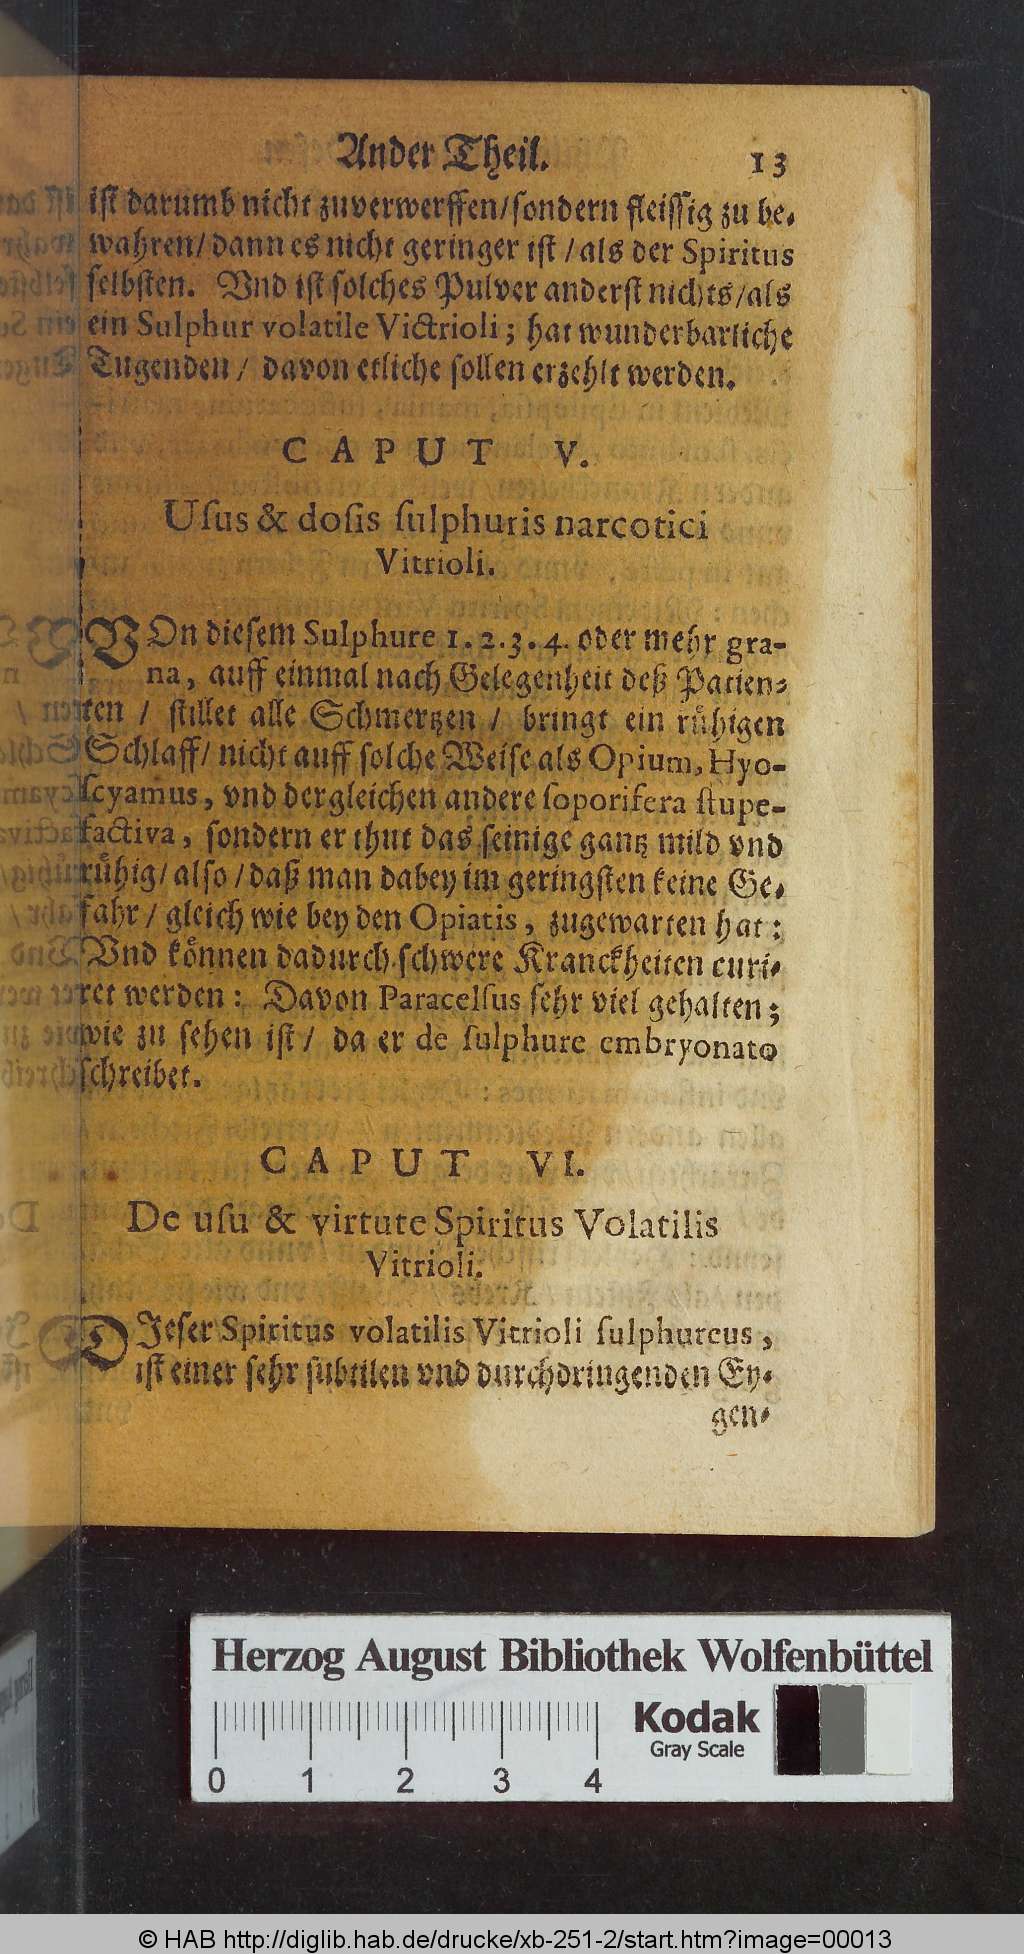 Ander Theil. 13
iſt darumb nicht zuverwerffen/ſondern fleiſſig zu be-
wahren/dann es nicht geringer iſt/als der Spiritus
ſelbſten. Vnd iſt ſolches Pulver anderſt nichts/als
ein Sulphur volatile Victrioli; hat wunderbarliche
Tugenden/ davon etliche ſollen erzehlt werden.
CAPUT V.
Uſus & doſis ſulphuris narcotici
Vitrioli.
VOn dieſem Sulphure 1. 2. 3. 4. oder mehr gra-
na, auff einmal nach Gelegenheit deß Patien-
ten / ſtillet alle Schmertzen / bringt ein ruͤhigen
Schlaff/ nicht auff ſolche Weiſe als Opium, Hyo-
ſcyamus, vnd dergleichen andere ſoporifera ſtupe-
factiva, ſondern er thut das ſeinige gantz mild vnd
ruͤhig/alſo/daß man dabey im geringſten keine Ge-
fahr/gleich wie bey den Opiatis, zugewarten hat:
Vnd koͤnnen dadurch ſchwere Kranckheiten curi-
ret werden: Davon Paracelſus ſehr viel gehalten;
wie zu ſehen iſt/ da er de ſulphure embryonato
ſchreibet.
CAPUT VI.
De uſu & virtute Spiritus Volatilis
Vitrioli.
DJeſer Spiritus volatilis Vitrioli ſulphureus,
iſt einer ſehr ſubtilen vnd durchdringenden Ey-
gen-
Herzog August Bibliothek Wolfenbüttel
Kodak
Gray Scale
0 1 2 3 4
© HAB http://diglib.hab.de/drucke/xb-251-2/start.htm?image=00013